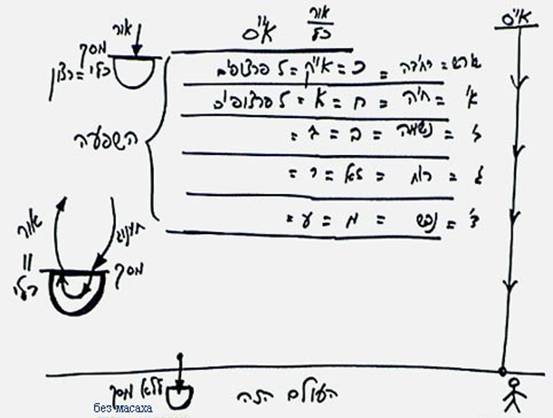 אור
כלי
א"ס
א"ס
אור
מסך
כלי = רצון
שורש = יחידה = כ = א"ק = 5 פרצופים
א' = חיה = ח = א = 5 פרצופים
ב = נשמה = ב = ב =
ג = רוח = ז"א = י =
ד' = נפש = מ = ע =
השפעה
אור
תענוג
מסך
כלי
ללא מסך
העולם הזה
без масаха